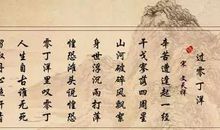 过零丁洋
宋 文天祥
辛苦遭逢起一经
干戈寥落四周星
山河破碎风飘絮
身世浮沉雨打萍
惶恐滩头说惶恐
零丁洋里叹零丁
人生自古谁无死